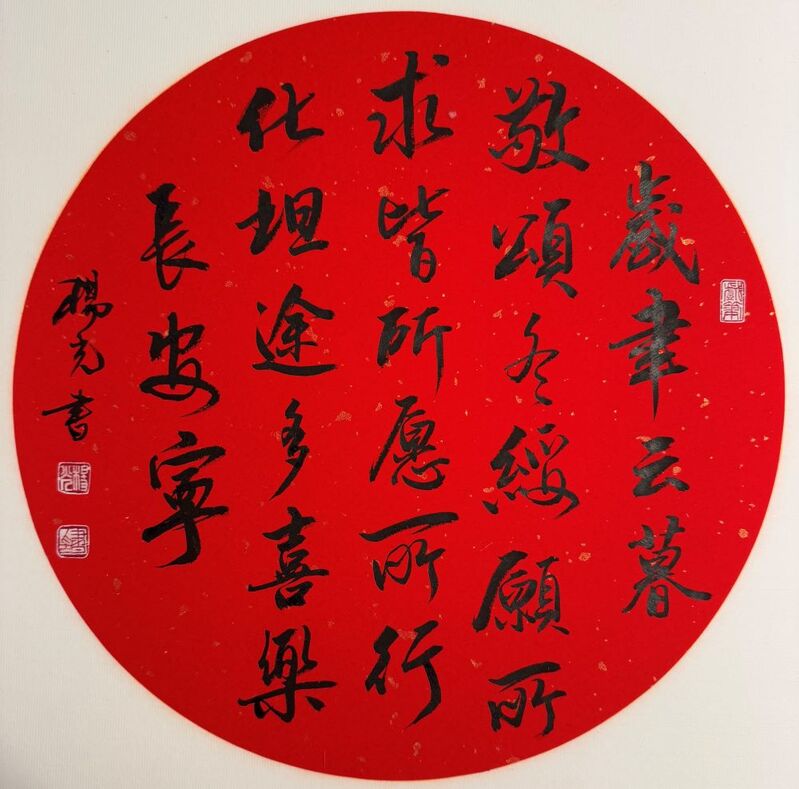 歲聿云暮
敬頌冬綏願所
求皆所愿所行
化坦途多喜樂
長安寧
楊光書